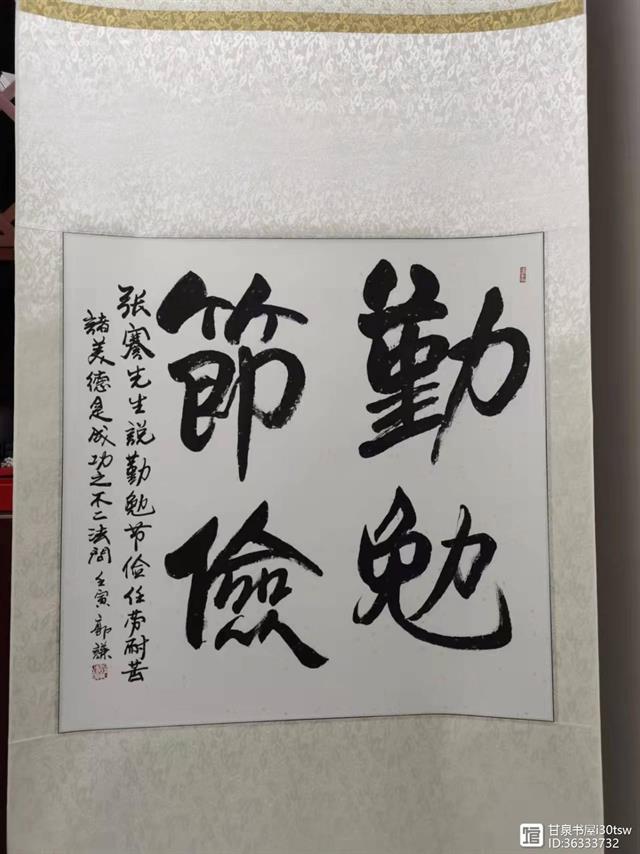 勤勉
節儉
张謇先生説勤勉节俭任劳耐苦
諸美德是成功之不二法门 壬寅 郭謙
甘泉书屋i30tsw
ID:36333732